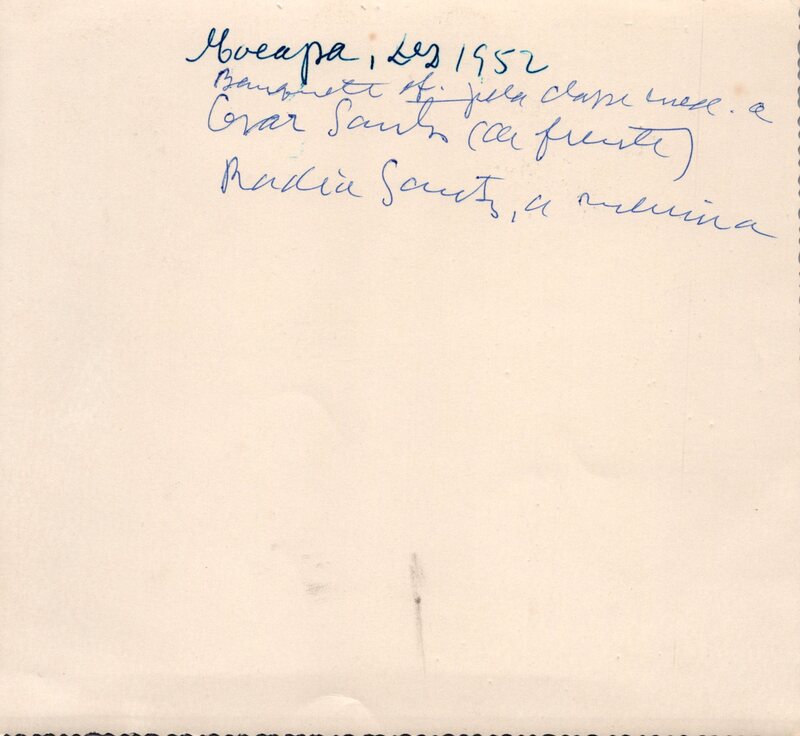 Mocapa, Dez 1952
Banquete of. pela classe med. a
Cesar Santos (de frente)
Nadia Santos, a menina